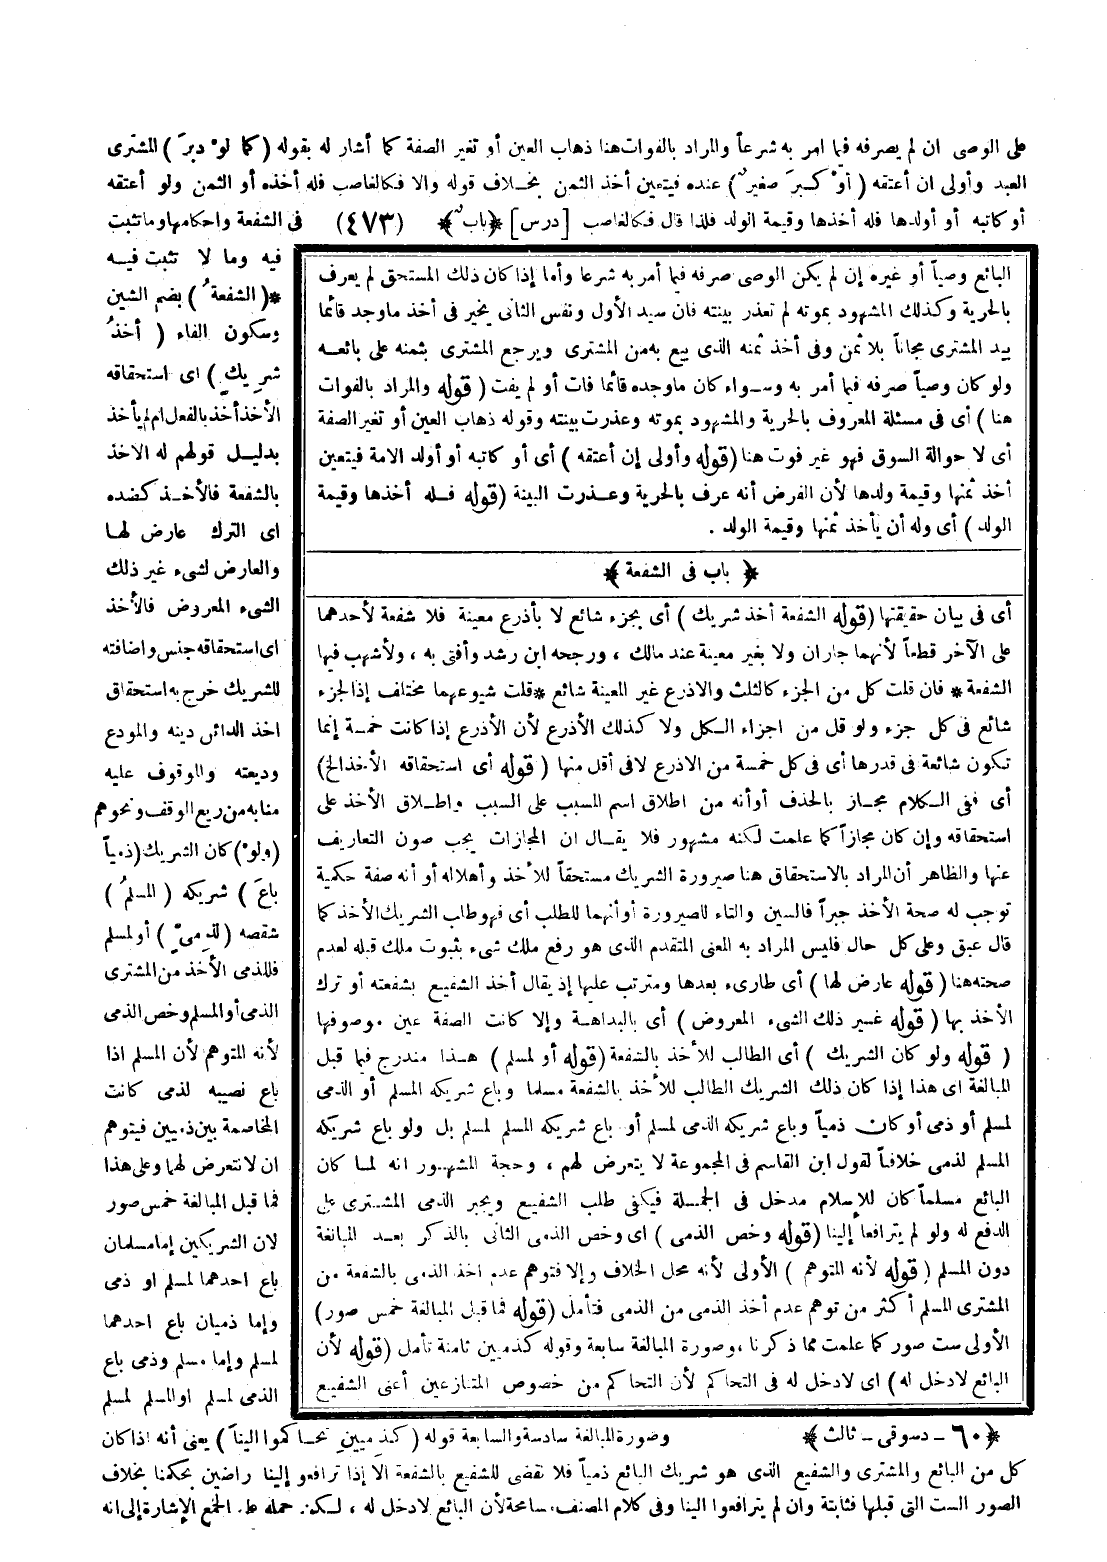 على الوصى ان لم يصرفه فيما امر به شرعاً والمراد بالفوات هنا ذهاب العين أو تغير الصفة كما أشار له بقوله (كما لو دبر) المشترى
العبد وأولى ان أعتقه (أو كبر صغير) عنده فيتعين أخذ الثمن بخلاف قوله والا فكالغاصب فله أخذه أو الثمن ولو أعتقه
أو كاتبه أو أولدها فله أخذها وقيمة الولد فلذا قال فكالغاصب [درس] ﴿باب﴾ (٤٧٣) فى الشفعة واحكامها وما تثبت
فيه وما لا تثبت فيه
*(الشفعةُ) بضم الشين
وسكون الفاء (أخذُ
شريكٍ) اى استحقاقه
الأخذ أخذ بالفعل ام لم يأخذ
بدليل قولهم له الاخذ
بالشفعة فالأخذ كضده
اى الترك عارض لها
والعارض لشىء غير ذلك
الشىء المعروض فالأخذ
اى استحقاقه جنس واضافته
للشريك خرج به استحقاق
اخذ الدائن دينه والمودع
وديعته والموقوف عليه
منابه من ريع الوقف ونحوهم
(ولو) كان الشريك (ذمياً
باعَ) شريكه (المسلمُ)
شقصه (لذمىّ) أو لمسلم
فللذمى الأخذ من المشترى
الذمى أو المسلم وخص الذمى
لأنه المتوهم لأن المسلم اذا
باع نصيبه لذمى كانت
المخاصمة بين ذميين فيتوهم
ان لا نتعرض لهما وعلى هذا
فما قبل المبالغة خمس صور
لان الشريكين إما مسلمان
باع احدهما لمسلم او ذمى
وإما ذميان باع احدهما
لمسلم وإما مسلم وذمى باع
الذمى لمسلم او المسلم لمسلم
البائع وصياً أو غيره إن لم يكن الوصى صرفه فيما أمر به شرعا وأما إذا كان ذلك المستحق لم يعرف
بالحرية وكذلك المشهود بموته لم تعذر بينته فان سيد الأول ونفس الثانى يخير فى أخذ ما وجد قائما
بيد المشترى مجاناً بلا ثمن وفى أخذ ثمنه الذى بيع به من المشترى ويرجع المشترى بثمنه على بائعه
ولو كان وصياً صرفه فيما أمر به وسواء كان ما وجده قائما فات أو لم يفت (قوله والمراد بالفوات
هنا) أى فى مسئلة المعروف بالحرية والمشهود بموته وعذرت بينته وقوله ذهاب العين أو تغير الصفة
أى لا حوالة السوق فهو غير فوت هنا (قوله وأولى إن أعتقه) أى أو كاتبه أو أولد الامة فيتعين
أخذ ثمنها وقيمة ولدها لأن الفرض أنه عرف بالحرية وعذرت البينة (قوله فله أخذها وقيمة
الولد) أى وله أن يأخذ ثمنها وقيمة الولد .
﴿باب فى الشفعة﴾
أى فى بيان حقيقتها (قوله الشفعة أخذ شريك) أى بجزء شائع لا بأذرع معينة فلا شفعة لأحدهما
على الآخر قطعاً لأنهما جاران ولا بغير معينة عند مالك ، ورجحه ابن رشد وأفتى به ، ولأشهب فيها
الشفعة * فان قلت كل من الجزء كالثلث والاذرع غير المعينة شائع * قلت شيوعهما مختلف إذ الجزء
شائع فى كل جزء ولو قل من اجزاء الكل ولا كذلك الأذرع لأن الأذرع إذا كانت خمسة إنما
تكون شائعة فى قدرها أى فى كل خمسة من الاذرع لا فى أقل منها (قوله أى استحقاقه الأخذ الخ)
أى ففى الكلام مجاز بالحذف أو أنه من اطلاق اسم المسبب على السبب واطلاق الأخذ على
استحقاقه وإن كان مجازاً كما علمت لكنه مشهور فلا يقال ان المجازات يجب صون التعاريف
عنها والظاهر أن المراد بالاستحقاق هنا صيرورة الشريك مستحقاً للأخذ وأهلاله أو أنه صفة حكمية
توجب له صحة الأخذ جبراً فالسين والتاء للصيرورة أو أنهما للطلب أى فهو طاب الشريك الأخذ كما
قال عبق وعلى كل حال فليس المراد به المعنى المتقدم الذى هو رفع ملك شىء بثبوت ملك قبله لعدم
صحته هنا (قوله عارض لها) أى طارىء بعدها ومترتب عليها إذ يقال أخذ الشفيع بشفعته أو ترك
الأخذ بها (قوله غير ذلك الشىء المعروض) أى بالبداهة وإلا كانت الصفة عين موصوفها
(قوله ولو كان الشريك) أى الطالب للأخذ بالشفعة (قوله أو لمسلم) هذا مندرج فيما قبل
المبالغة اى هذا إذا كان ذلك الشريك الطالب للأخذ بالشفعة مسلما وباع شريكه المسلم أو الذمى
لمسلم أو ذمى أو كان ذمياً وباع شريكه الذمى لمسلم أو باع شريكه المسلم لمسلم بل ولو باع شريكه
المسلم لذمى خلافاً لقول ابن القاسم فى المجموعة لا يتعرض لهم ، وحجة المشهور انه لما كان
البائع مسلماً كان للإسلام مدخل فى الجملة فيكفى طلب الشفيع ويجبر الذمى المشترى على
الدفع له ولو لم يترافعا إلينا (قوله وخص الذمى) اى وخص الذمى الثانى بالذكر بعد المبالغة
دون المسلم (قوله لأنه المتوهم) الأولى لأنه محل الخلاف وإلا فتوهم عدم اخذ الذمى بالشفعة من
المشترى المسلم أكثر من توهم عدم أخذ الذمى من الذمى فتأمل (قوله فما قبل المبالغة خمس صور)
الأولى ست صور كما علمت مما ذكرنا ، وصورة المبالغة سابعة وقوله كذميين ثامنة تأمل (قوله لأن
البائع لا دخل له) اى لا دخل له فى التحاكم لأن التحاكم من خصوص المتنازعين أعنى الشفيع
﴿٦٠ - دسوقى - ثالث﴾ وصورة المبالغة سادسة والسابعة قوله (كذميينِ تحاكموا الينا) يعنى أنه اذا كان
كل من البائع والمشترى والشفيع الذى هو شريك البائع ذمياً فلا نقضى للشفيع بالشفعة الا إذا ترافعوا إلينا راضين بحكمنا بخلاف
الصور الست التى قبلها فثابتة وان لم يترافعوا الينا وفى كلام المصنف مسامحة لأن البائع لا دخل له ، لكن حمله على الجمع الإشارة إلى انه